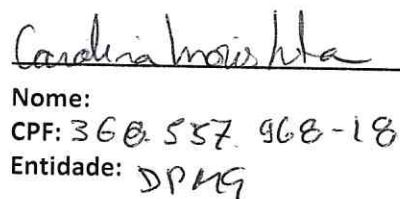 Carolina Morishita
Nome:
CPF: 368.557.968-18
Entidade: DPMG